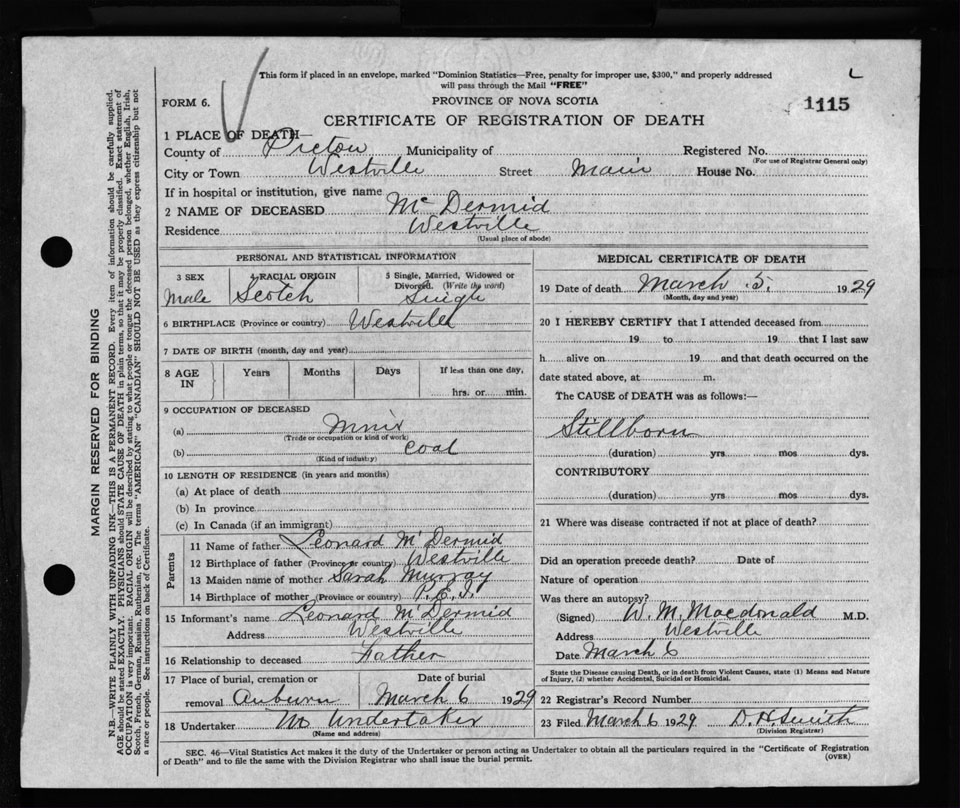 This form if placed in an envelope, marked "Dominion Statistics—Free, penalty for improper use, $300," and properly addressed
will pass through the Mail "FREE"
FORM 6.
PROVINCE OF NOVA SCOTIA
1115
CERTIFICATE OF REGISTRATION OF DEATH
1 PLACE OF DEATH—
County of Pictou Municipality of Registered No.
(For use of Registrar General only)
City or Town Westville Street Main House No.
If in hospital or institution, give name
2 NAME OF DECEASED McDermid
Residence Westville
(Usual place of abode)
PERSONAL AND STATISTICAL INFORMATION
3 SEX 4 RACIAL ORIGIN 5 Single, Married, Widowed or
Divorced. (Write the word)
Male Scotch Single
6 BIRTHPLACE (Province or country) Westville
7 DATE OF BIRTH (month, day and year)
8 AGE IN Years Months Days If less than one day,
hrs. or min.
9 OCCUPATION OF DECEASED
(a)
(Trade or occupation or kind of work)
(b) Coal
(Kind of industry)
10 LENGTH OF RESIDENCE (in years and months)
(a) At place of death
(b) In province
(c) In Canada (if an immigrant)
Parents
11 Name of father Leonard McDermid
12 Birthplace of father (Province or country) Westville
13 Maiden name of mother Sarah Murray
14 Birthplace of mother (Province or country) P.E.I.
15 Informant's name Leonard McDermid
Address Westville
16 Relationship to deceased Father
17 Place of burial, cremation or Date of burial
removal Auburn March 6 1929
18 Undertaker Undertaker
(Name and address)
MEDICAL CERTIFICATE OF DEATH
19 Date of death March 5, 1929
(Month, day and year)
20 I HEREBY CERTIFY that I attended deceased from
19 to 19 that I last saw
h alive on 19 and that death occurred on the
date stated above, at m.
The CAUSE of DEATH was as follows:—
Stillborn
(duration) yrs mos dys.
CONTRIBUTORY
(duration) yrs mos dys.
21 Where was disease contracted if not at place of death?
Did an operation precede death? Date of
Nature of operation
Was there an autopsy?
(Signed) W. M. Macdonald M.D.
Address Westville
Date March 6
State the Disease causing Death, or in death from Violent Causes, state (1) Means and Nature
of Injury, (2) whether Accidental, Suicidal or Homicidal.
22 Registrar's Record Number
23 Filed March 6 1929 D. H. Smith
(Division Registrar)
SEC. 46—Vital Statistics Act makes it the duty of the Undertaker or person acting as Undertaker to obtain all the particulars required in the "Certificate of Registration
of Death" and to file the same with the Division Registrar who shall issue the burial permit.
(OVER)
MARGIN RESERVED FOR BINDING
N.B—WRITE PLAINLY WITH UNFADING INK—THIS IS A PERMANENT RECORD. Every item of information should be carefully supplied.
AGE should be stated EXACTLY. PHYSICIANS should STATE CAUSE OF DEATH in plain terms, so that it may be properly classified. Exact statement of
OCCUPATION is very important. RACIAL ORIGIN will be described by stating to what people or tongue the deceased person belonged, whether English, Irish,
Scotch, French, German, Russian, Ruthenian, etc. The terms "AMERICAN" or "CANADIAN" SHOULD NOT BE USED as they express citizenship but not
a race or people. See instructions on back of Certificate.